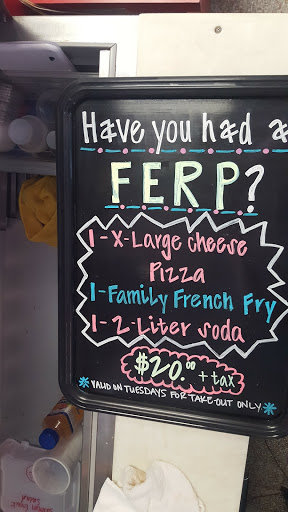 Have you had a
FERP?
1-X-Large cheese
Pizza
1-Family French Fry
1-2-Liter soda
$20.00 + tax
*VALID ON TUESDAYS FOR TAKE-OUT ONLY*